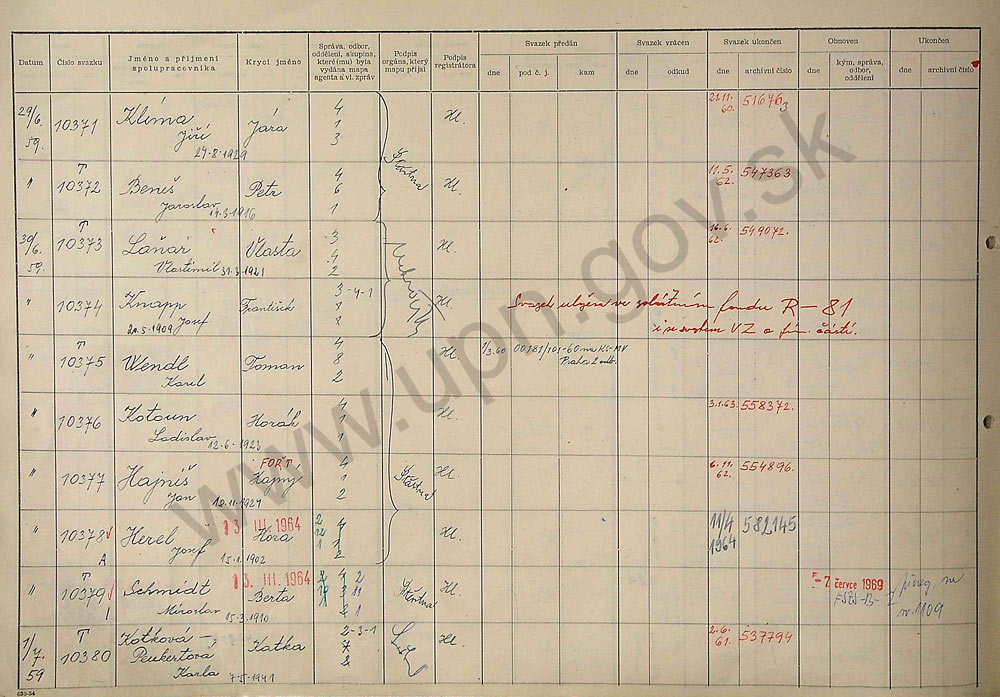 Datum
Číslo svazku
Jméno a příjmení spolupracovníka
Krycí jméno
Správa, odbor, oddělení, skupina, které(mu) byla vydána mapa agenta a vl. zpráv
Podpis orgána, který mapu přijal
Podpis registrátora
Svazek předán
dne
pod č. j.
kam
Svazek vrácen
dne
odkud
Svazek ukončen
dne
archivní číslo
Obnoven
kým, správa, odbor, oddělení
Ukončen
dne
archivní číslo
29/6. 59. 10371 Klíma Jára 4 Hl. 21.11. 60. 51676 3
Jiří 1
24-8-1929 3
T
" 10372 Beniš Petr 4 Hl. 11.5. 62. 547363
Jaroslav 6
14-3-1916 1
T
30/6. 59. 10373 Laňař Vlasta 3 Hl. 16.6. 62. 549072.
Vlastimil 31-3-1921 4
2
" 10374 Knapp František 3-4-1 Hl. Svazek uložen ve zvláštním fondu R-81
20-5-1909 Josef i se svazkem VZ a fin. částí.
T
" 10375 Wendl Toman 4 Hl. 1/3.60 00181/101-60
Karel 8 Praha
2
" 10376 Kotoun Horák 4 Hl. 3.1.63. 558372.
Ladislav 1
12-6-1923 1
FOŘT
" 10377 Hajniš Hajný 4 Hl. 6.11. 62. 554896.
Jan 1
12-11-1921 2
13. III. 1964
" 10378 Kerel Hora 4 Hl. 11/4 1964 582145
A Josef 15-1-1902 2
T 13. III. 1964
" 10379 Schmidt Berta 4 2 Hl. -7. července 1969
1 Miroslav 3 11
15-3-1910 2 1 1109
T
1/7. 59 10380 Kotková – Katka 2-3-1 Hl. 2.6. 61. 537794
Peukertová
Karla 7-5-1941 2
www.upn.gov.sk